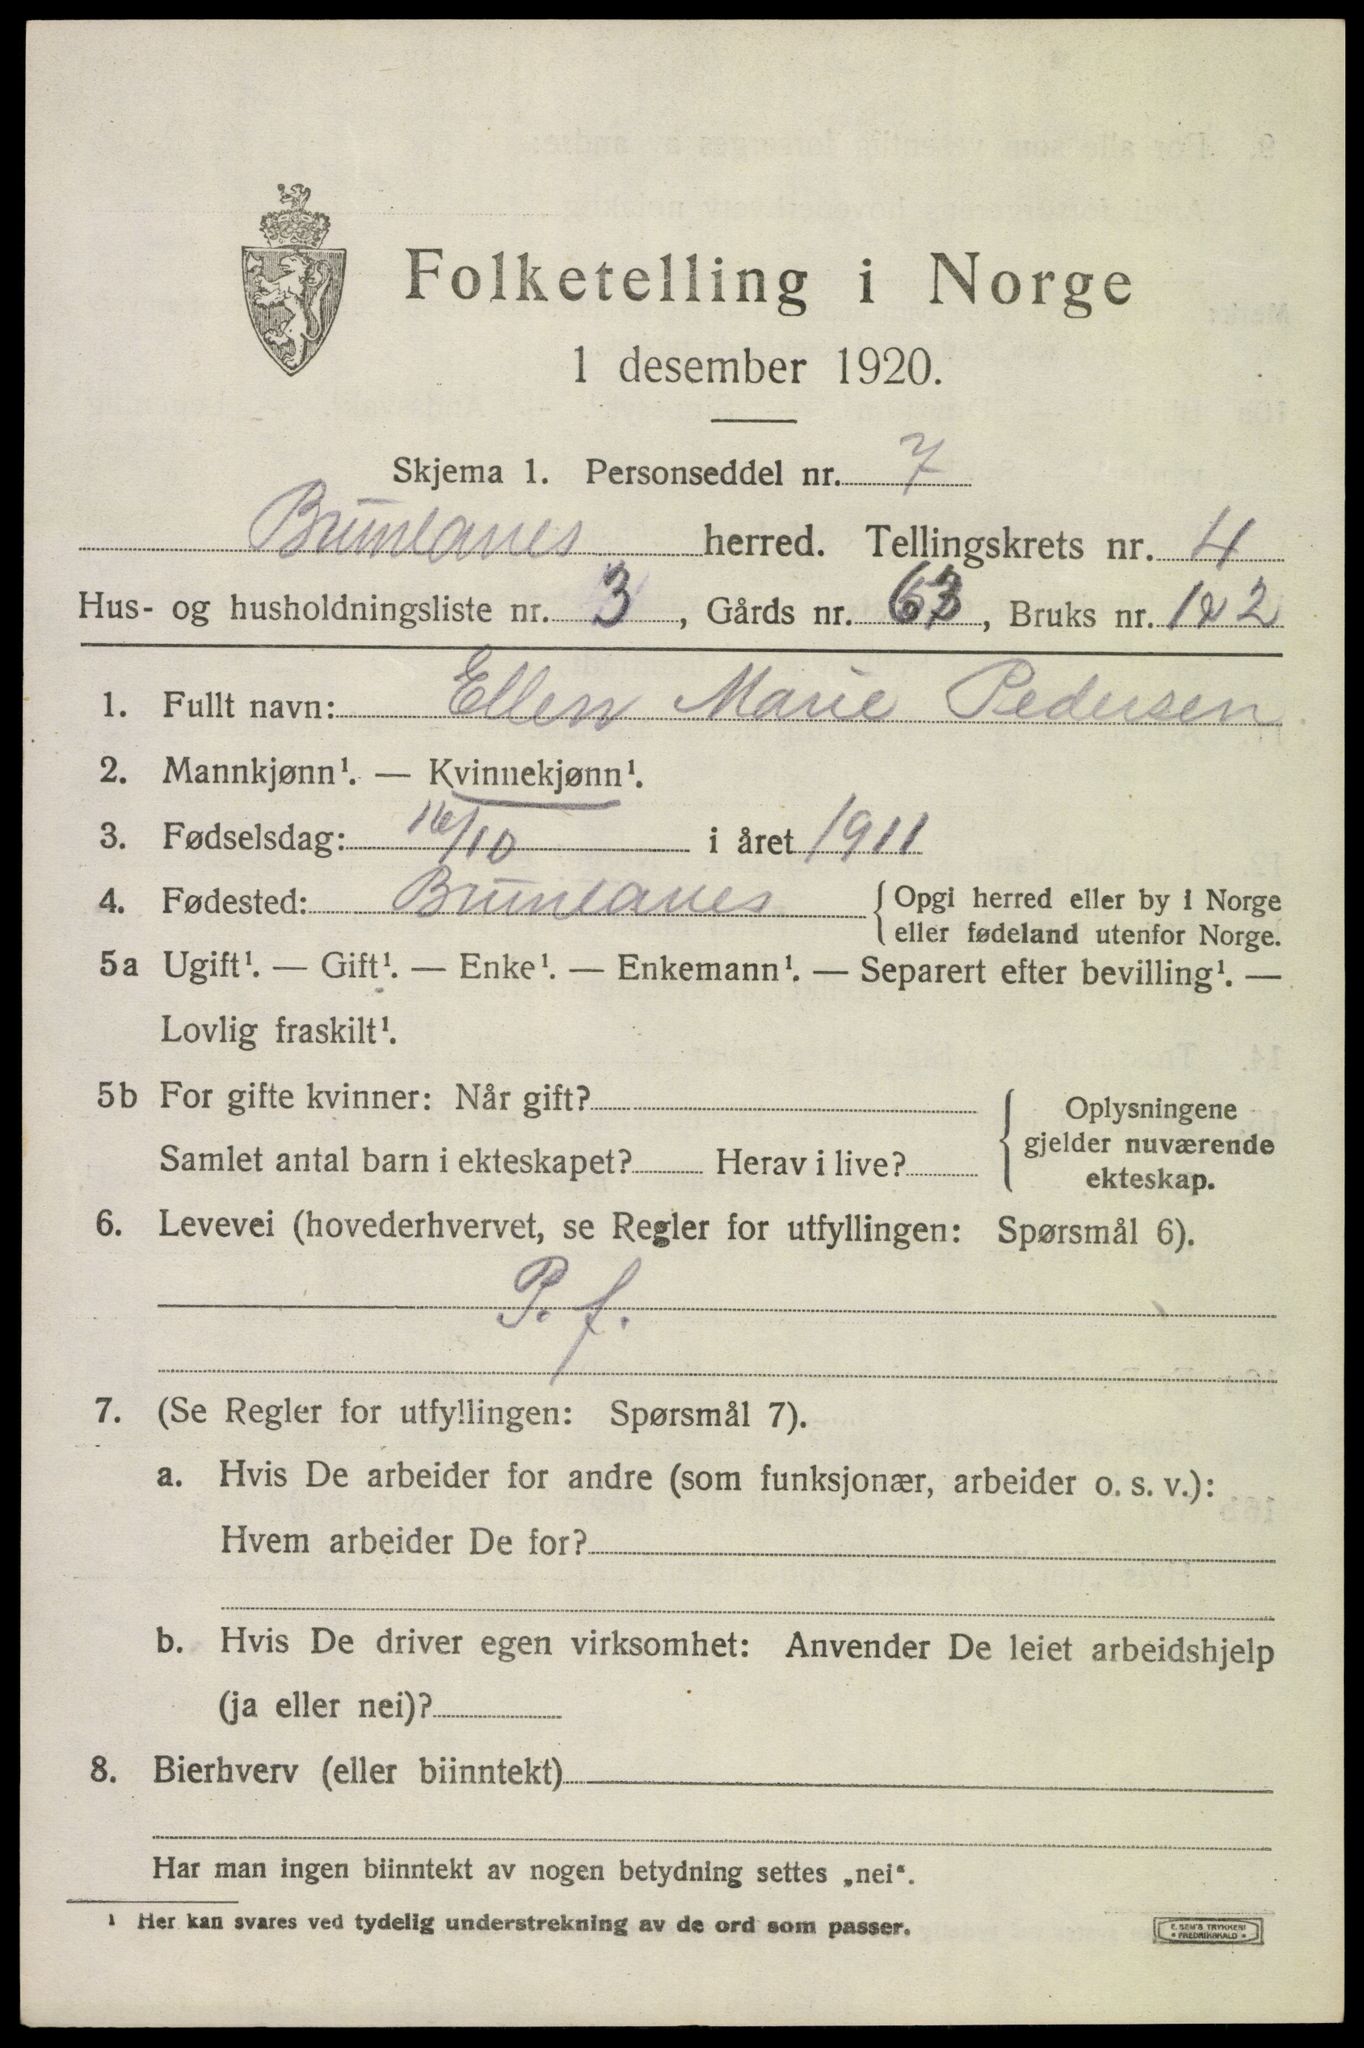 Folketelling i Norge
1 desember 1920.
Skjema 1. Personseddel nr. 7
Brunlanes herred. Tellingskrets nr. 4
Hus- og husholdningsliste nr. 3, Gårds nr. 63, Bruks nr. 1 2
1. Fullt navn: Ellen Marie Pedersen
2. Mannkjønn¹. — Kvinnekjønn¹.
3. Fødselsdag: 16/10 i året 1911
4. Fødested: Brunlanes { Opgi herred eller by i Norge
eller fødeland utenfor Norge.
5a Ugift¹. — Gift¹. — Enke¹. — Enkemann¹. — Separert efter bevilling¹. —
Lovlig fraskilt¹.
5b For gifte kvinner: Når gift?
Samlet antal barn i ekteskapet? Herav i live?
Oplysningene
gjelder nuværende
ekteskap.
6. Levevei (hovederhvervet, se Regler for utfyllingen: Spørsmål 6).
P. f.
7. (Se Regler for utfyllingen: Spørsmål 7).
a. Hvis De arbeider for andre (som funksjonær, arbeider o. s. v.):
Hvem arbeider De for?
b. Hvis De driver egen virksomhet: Anvender De leiet arbeidshjelp
(ja eller nei)?
8. Bierhverv (eller biinntekt)
Har man ingen biinntekt av nogen betydning settes „nei“.
¹ Her kan svares ved tydelig understrekning av de ord som passer.
E. SEM'S TRYKKERI
FREDRIKSHALD